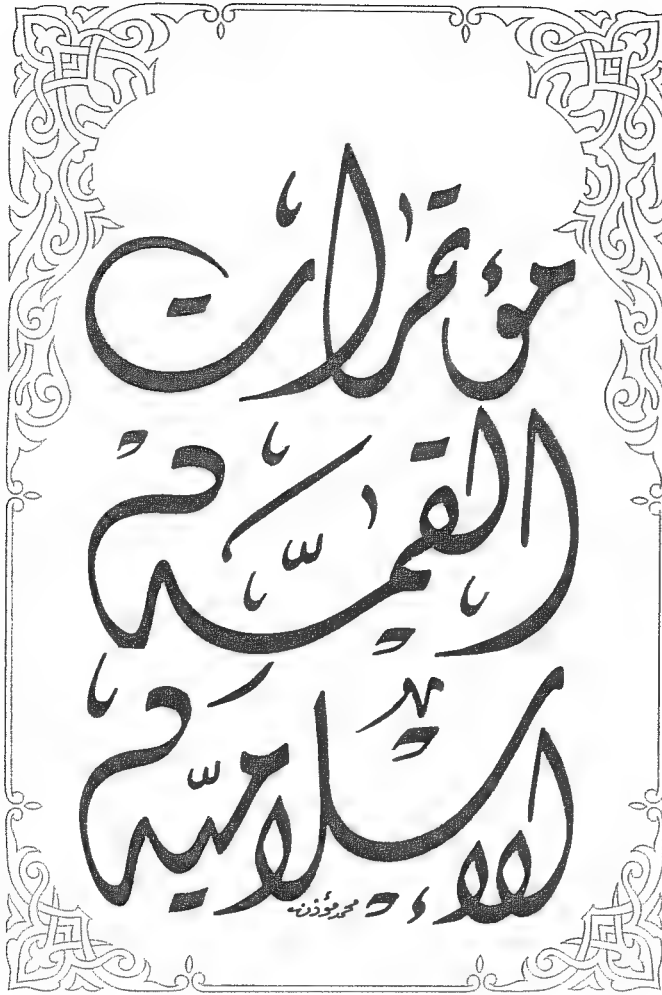 مؤتمرات
القمّة
الإسلاميّة
محمد مؤذن